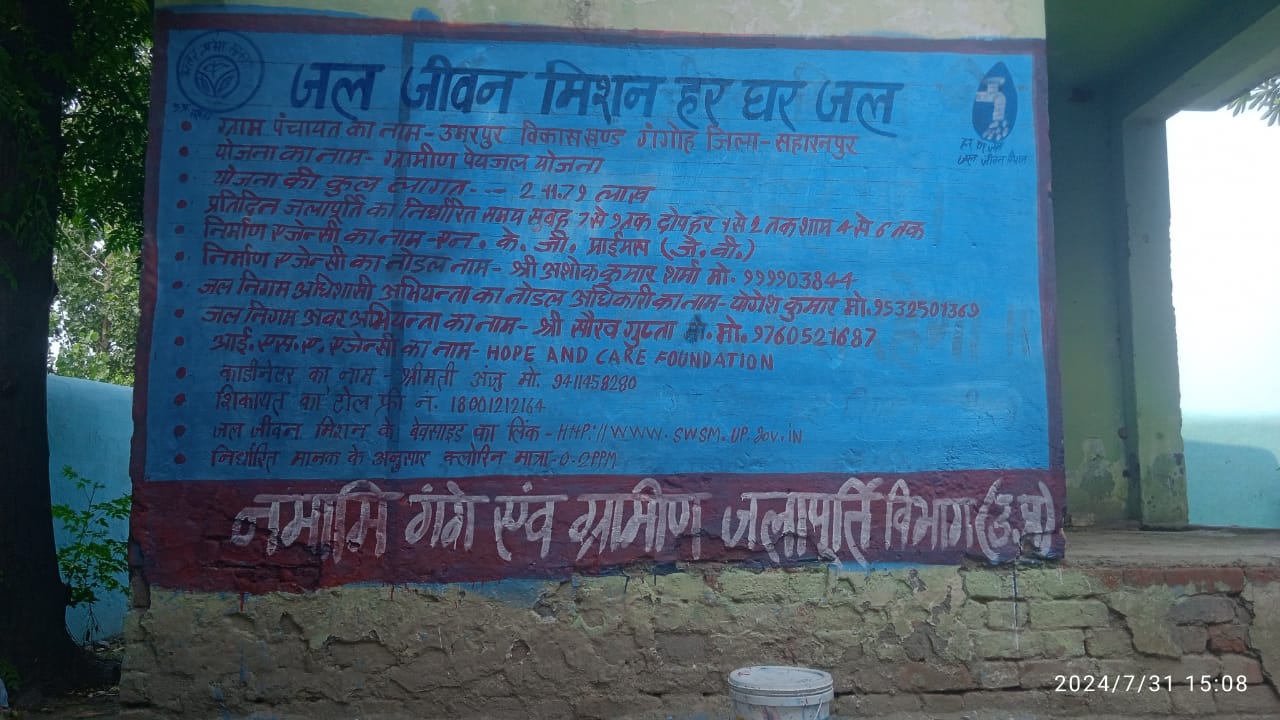 जल जीवन मिशन हर घर जल
ग्राम पंचायत का नाम- उमरपुर विकासखण्ड गंगोह जिला- सहारनपुर
योजना का नाम- ग्रामीण पेयजल योजना
योजना की कुल लागत--- 211.79 लाख
प्रतिदिन जलापूर्ति का निर्धारित समय सुबह 7 से 9 तक दोपहर 1 से 2 तक शाम 4 से 6 तक
निर्माण एजेन्सी का नाम- एन. के. जी. प्राईमस (जे. वी.)
निर्माण एजेन्सी का नोडल नाम- श्री अशोक कुमार शर्मा मो. 999903844
जल निगम अधिशासी अभियन्ता का नोडल अधिकारी का नाम- योगेश कुमार मो. 9532501369
जल निगम अवर अभियन्ता का नाम- श्री सौरव गुप्ता मो. 9760521687
आई. एस. ए. एजेन्सी का नाम- HOPE AND CARE FOUNDATION
कार्डीनेटर का नाम श्रीमती अंजु मो. 9411458280
शिकायत का टोल फ्री नं. 18001212164
जल जीवन मिशन के बेवसाइड का लिंक- HHP://WWW.SWSM.UP.gov.iN
निर्धारित मानक के अनुसार क्लोरिन मात्रा-0.2PPM
नमामि गंगे एंव ग्रामीण जलापूर्ति विभाग (उ.प्र)
हर घर जल
जल जीवन मिशन
2024/7/31 15:08